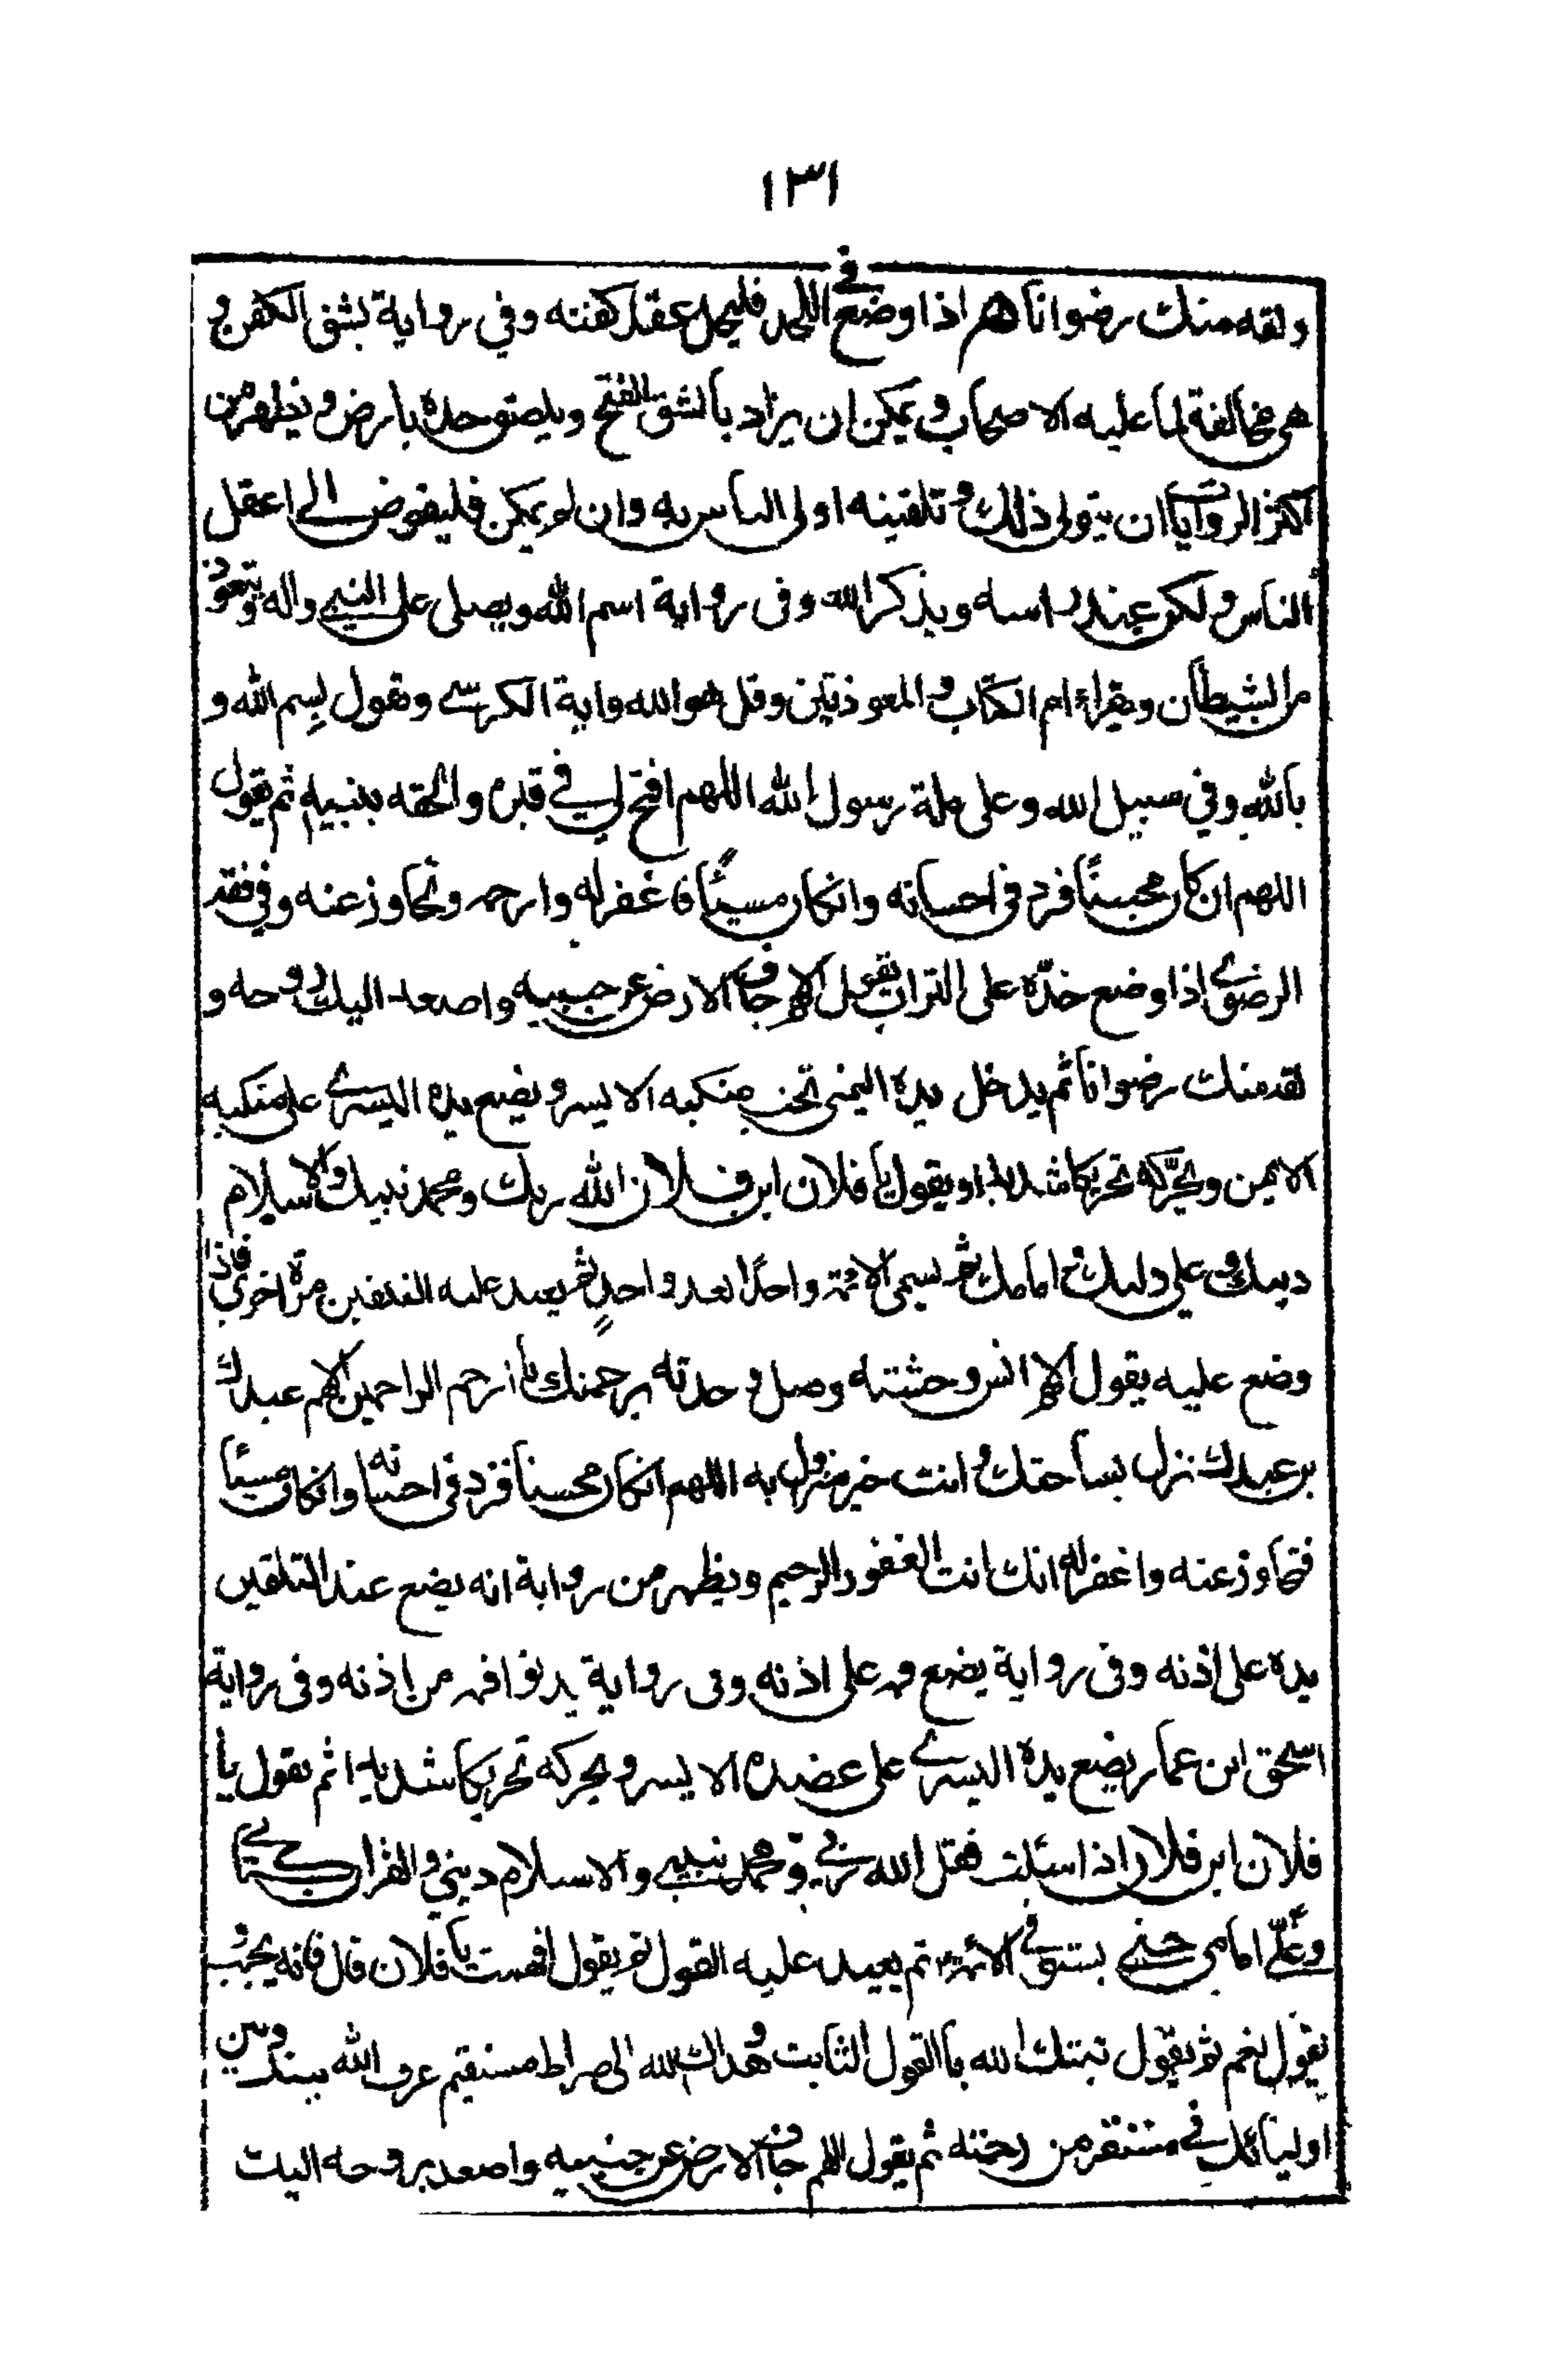 ١٣١
ولقه منك رضوانا هم اذا وضع في اللحد فليحل عقد كفنه وفي رواية لشق الكفن و
هى مخالفة لما عليه الاصحاب ويمكن ان يراد بالشق الفتح ويلصق خده بارض ويظهر من
اكثر الروايات ان يتولى ذلك وتلقينه اولى الناس به وان لم يمكن فليفوض الى اعقل
الناس وليكن عند راسه ويذكر الله وفى رواية اسم الله ويصلى على النبي واله ويتعوذ
من الشيطان ويقراء ام الكتاب والمعوذتين وقل هو الله واية الكرسي وتقول بسم الله و
بالله وفي سبيل الله وعلى ملة رسول الله اللهم افتح له في قبره والحقه بنبيه ثم يقول
اللهم ان كان محسنًا فزد فى احسانه وان كان مسيئًا فاغفر له وارحمه وتجاوز عنه وفي فقه
الرضوي اذا وضع خده على التراب تقول اللهم جاف الارض عن جنبيه واصعد اليك روحه و
لقه منك رضوانا ثم يدخل يده اليمنى تحت منكبه الايسر ويضع يده اليسرى على منكبه
الايمن ويحرّكه تحريكا شديدا ويقول يا فلان ابن فلان الله ربك ومحمد نبيك والاسلام
دينك وعلي وليك وامامك ثم يسمى الائمة واحدًا بعد واحدٍ ثم يعيد عليه التلقين مرة اخرى فاذا
وضع عليه يقول اللهم انس وحشته وصل وحدته برحمتك يا ارحم الراحمين اللهم عبدك
بن عبدك نزل بساحتك وانت خير منزول به اللهم ان كان محسنا فزد فى احسانه وان كان مسيئا
فتجاوز عنه واغفر له انك انت الغفور الرحيم ويظهر من رواية انه يضع عند التلقين
يده على اذنه وفى رواية يضع فمه على اذنه وفى رواية يدنوا فمه من اذنه وفى رواية
اسحق ابن عمار يضع يده اليسرى على عضده الايسر ويحركه تحريكا شديدا ثم يقول يا
فلان ابن فلان اذا سئلت فقل الله ربي ومحمد نبيي والاسلام ديني والقران كتابي
وعلّي امامى حتى يستوفي الائمة ثم يعيد عليه القول ثم يقول افهمت يا فلان قال فانه يجيب و
يقول نعم ثم يقول ثبتك الله بالقول الثابت وهداك الله الى صراط مستقيم عرف الله بينك وبين
اوليائك في مستقر من رحمته ثم يقول اللهم جاف الارض عن جنبيه واصعد بروحه اليك